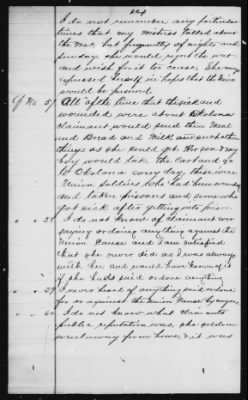 I do not remember any particular
times that my mistress talked about
the War, but frequently of nights and
Sundays she would read the
and wish for the cause. She always
expressed herself in hopes that the Union
would be preserved.
Q No. 57 All of the time that the sick and
wounded were about Okolona
claimant would send them Meal
and Bread and Milk and such other
things as she could get. Her son & my
boy would take the cart and go
to Okolona every day, these were
Union Soldiers who had been wounded
and taken prisoners and some who
got sick after getting into prison
" " 58. I do not know of claimant ever
saying or doing anything against the
Union Cause and I am satisfied
that she never did as I was always
with her and would have known of it
if she had said or done anything
" " 59 I never heard of anything said or done
for or against the Union Cause by anyone
" " 60 I do not know what claimants
public reputation was, she seldom
went away from home, & it was